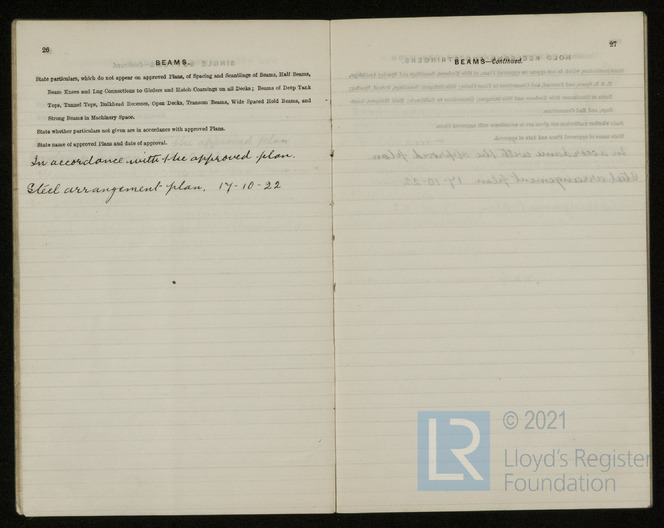 26
BEAMS.
State particulars, which do not appear on approved Plans, of Spacing and Scantlings of Beams, Half Beams,
Beam Knees and Lug Connections to Girders and Hatch Coamings on all Decks; Beams of Deep Tank
Tops, Tunnel Tops, Bulkhead Recesses, Open Decks, Transom Beams, Wide Spaced Hold Beams, and
Strong Beams in Machinery Space.
State whether particulars not given are in accordance with approved Plans.
State name of approved Plans and date of approval.
In accordance with the approved plan.
Steel arrangement plan. 17-10-22
27
BEAMS—Continued.
LR
© 2021
Lloyd's Register
Foundation